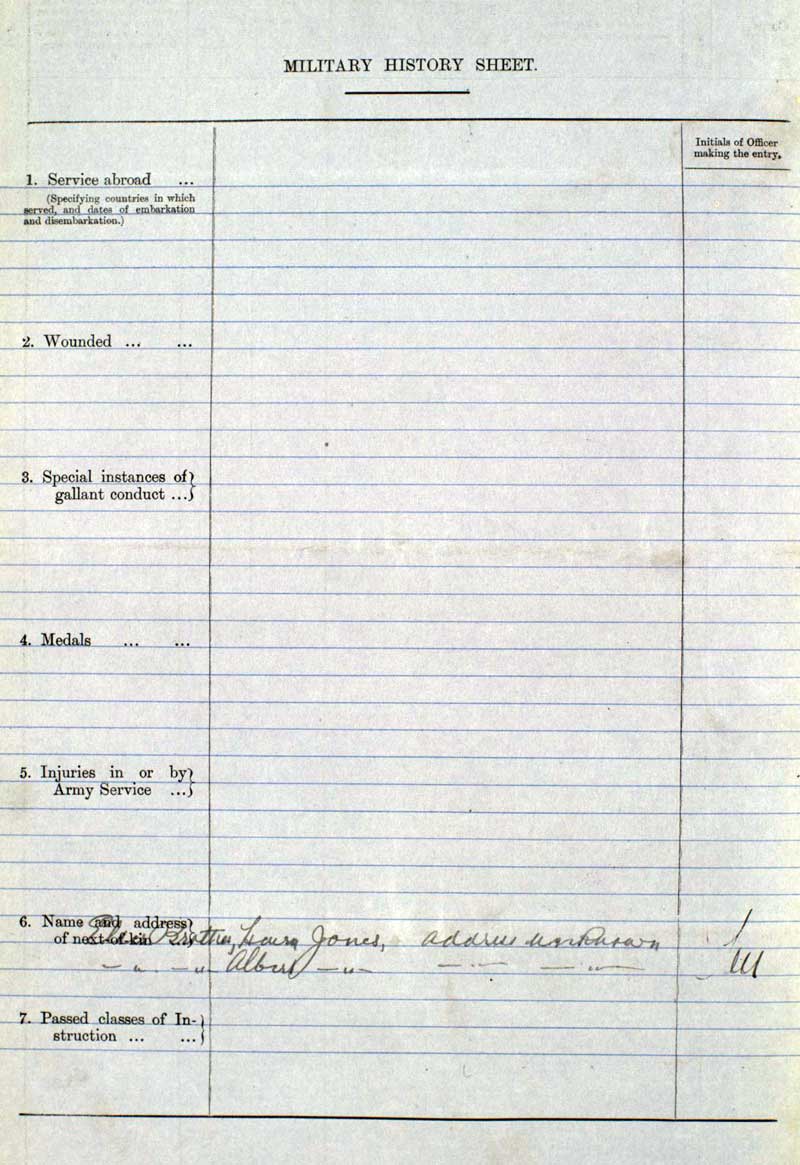 MILITARY HISTORY SHEET.
Initials of Officer
making the entry.
1. Service abroad ...
(Specifying countries in which
served, and dates of embarkation
and disembarkation.)
2. Wounded ... ...
3. Special instances of
gallant conduct ...
4. Medals ... ...
5. Injuries in or by
Army Service ...
6. Name and address
of next-of-kin ...
Brother, Jones, address unknown
Albert
7. Passed classes of In-
struction ... ...